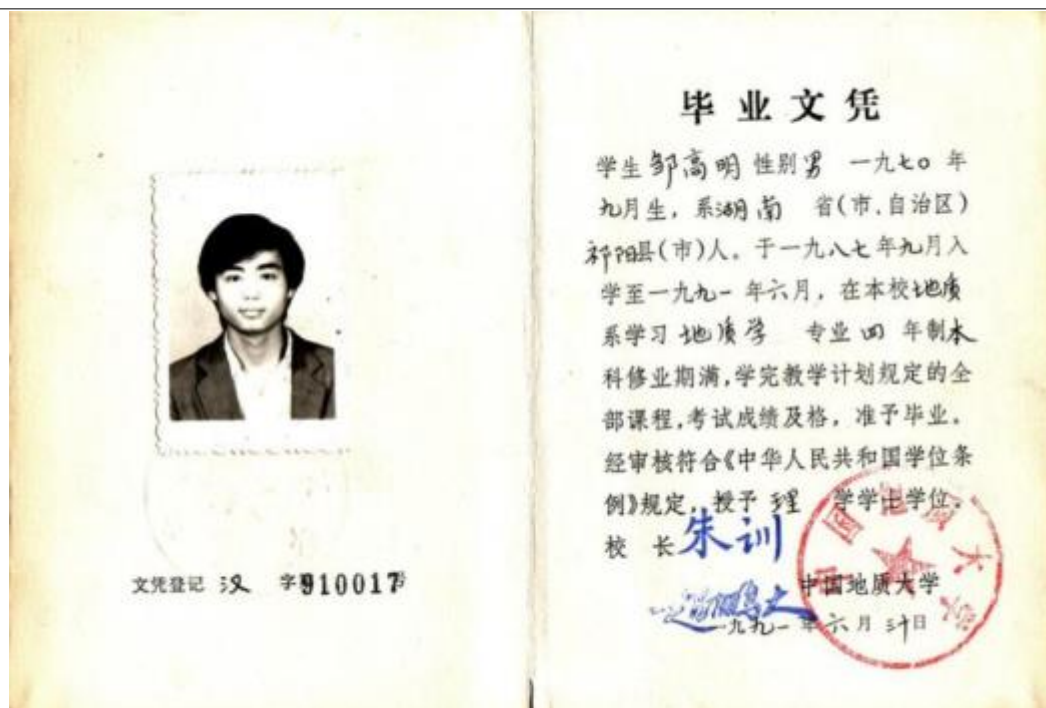 文凭登记 汉 字910017号
毕业文凭
学生邹高明 性别男 一九七〇年
九月生，系湖南 省(市.自治区)
祁阳县(市)人。于一九八七年九月入
学至一九九一年六月，在本校地质
系学习 地质学 专业 四 年制本
科修业期满,学完教学计划规定的全
部课程,考试成绩及格，准予毕业。
经审核符合《中华人民共和国学位条
例》规定，授予 理 学学士学位。
校 长 朱训
中国地质大学
一九九一年六月三十日
中国地质大学